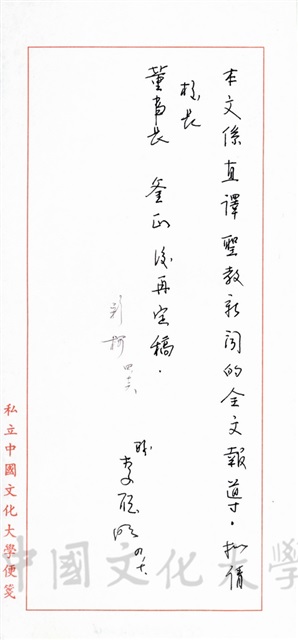 本文係直譯聖教新聞的全文報導。擬請
校長
董事長 鑒正後再定稿。
職
李聰明
私立中國文化大學便箋
中國文化大學